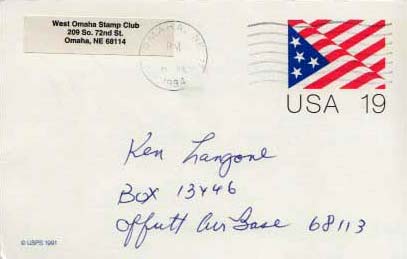 West Omaha Stamp Club
209 So. 72nd St.
Omaha, NE 68114
OMAHA, NE
PM
1994
USA 19
Ken Langone
Box 13446
Offutt Air Base 68113
© USPS 1991